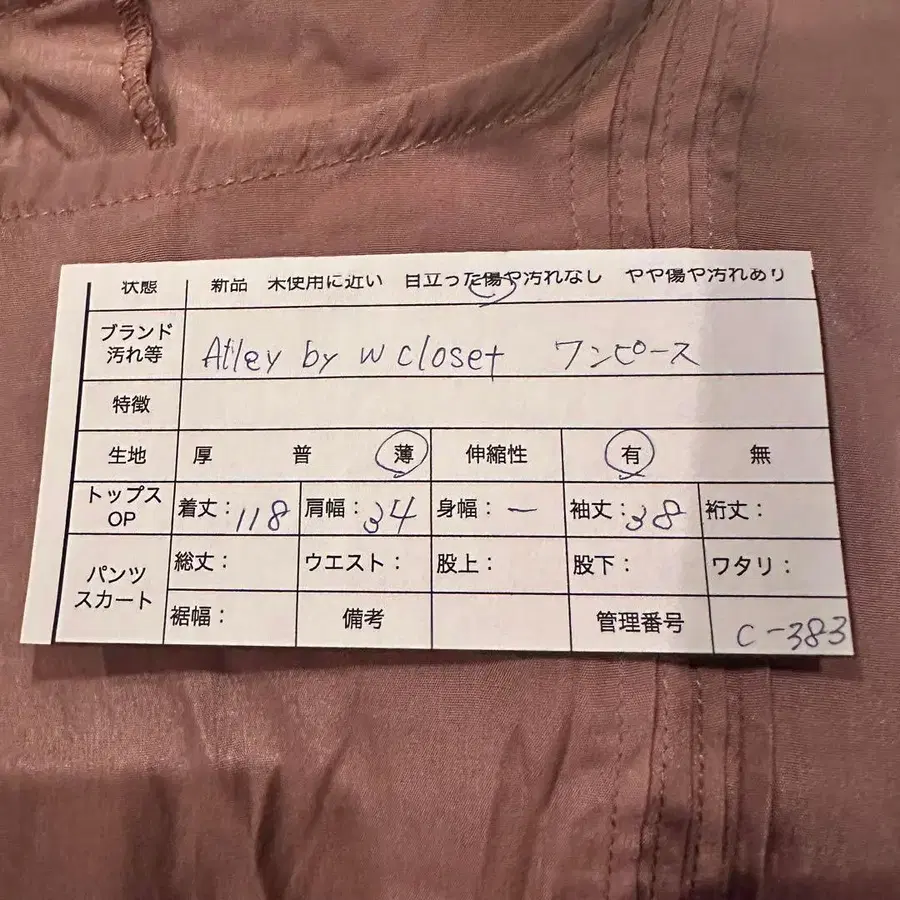 状態 新品 未使用に近い 目立った傷や汚れなし やや傷や汚れあり
ブランド
汚れ等 Alley by w closet ワンピース
特徴
生地 厚 普 薄 伸縮性 有 無
トップス
OP 着丈：118 肩幅：34 身幅：ー 袖丈：38 裄丈：
パンツ
スカート 総丈： ウエスト： 股上： 股下： ワタリ：
裾幅： 備考 管理番号 C-383